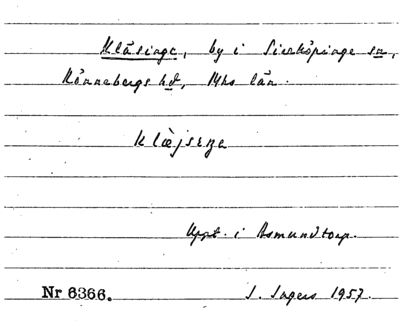 Klåsinge, by i Sireköpinge sn,
Rönnebergs hd, Mhs län.
Klæjseŋe
Uppt. i Asmundtorp.
Nr 6366. I. Ingers 1957.